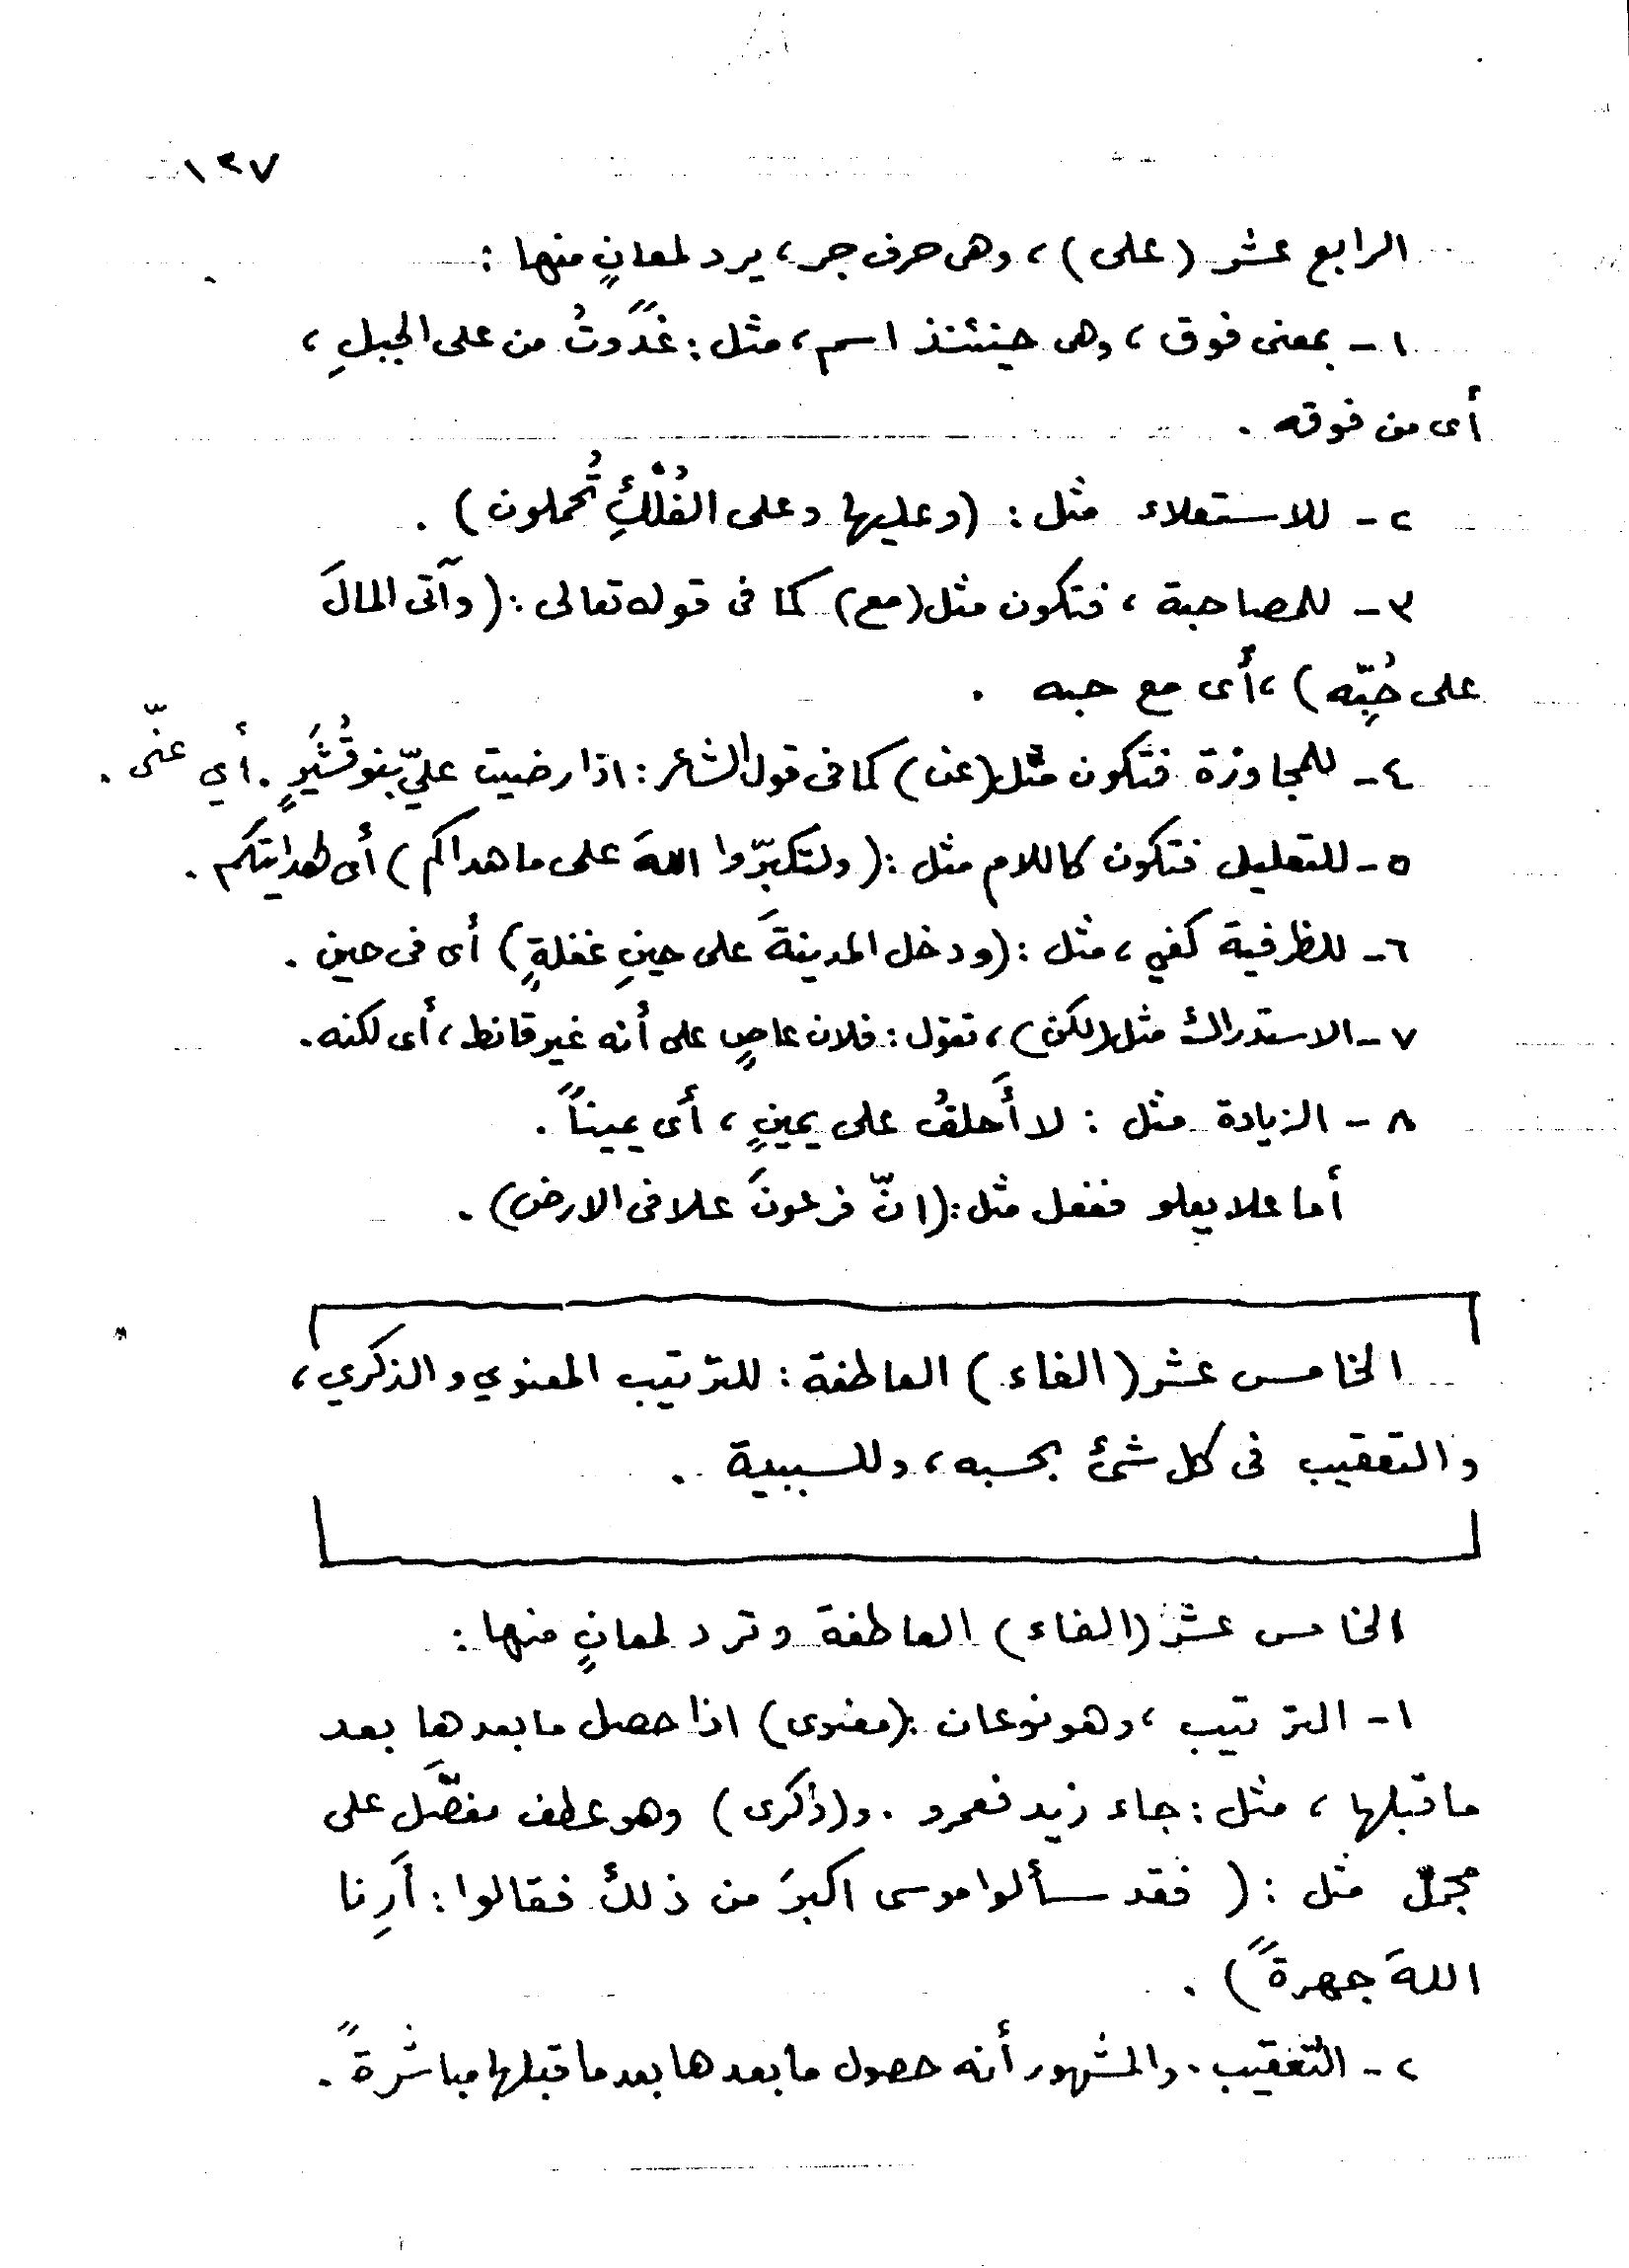 ١٢٧
الرابع عشر (على) ، وهى حرف جر ، يرد لمعانٍ منها :
١ - بمعنى فوق ، وهى حينئذ اسم ، مثل : غدًوتُ من على الجبلِ ،
أى من فوقه .
٢ - للاستعلاء مثل : (وعليها وعلى الفُلْكِ تُحملون ) .
٣ - للمصاحبة ، فتكون مثل (مع) كما فى قوله تعالى : ( وآتى المالَ
على حُبِّه ) ، أى مع حبه .
٤ - للمجاوزة فتكون مثل (عن) كما فى قول الشاعر : اذا رضيت عليّ بنو قُشَيرٍ . أي عنّى .
٥ - للتعليل فتكون كاللام مثل : ( ولتكبّروا اللهَ على ما هداكم ) أى لهدايتكم .
٦ - للظرفية كفي ، مثل : (ودخل المدينةَ على حينِ غفلةٍ ) أى فى حين .
٧ - الاستدراك مثل (لكن) ، تقول : فلان عاصٍ على أنه غير قانط ، أى لكنه .
٨ - الزيادة مثل : لا أَحلفُ على يمينٍ ، أى يميناً .
أما علا يعلو ففعل مثل : (انّ فرعونَ علا فى الارض) .
الخامس عشر ( الفاء ) العاطفة : للترتيب المعنوي والذكري ،
والتعقيب فى كل شئ بحسبه ، وللسببية .
الخامس عشر (الفاء ) العاطفة وترد لمعانٍ منها :
١ - الترتيب ، وهو نوعان : (معنوى ) اذا حصل ما بعدها بعد
ما قبلها ، مثل : جاء زيد فعمرو . و(ذكرى ) وهو عطف مفصَّل على
مجمل مثل : ( فقد سألوا موسى اكبرَ من ذلك فقالوا : أَرِنا
اللهَ جهرةً ) .
٢ - التعقيب . والمشهور أنه حصول ما بعدها بعد ما قبلها مباشرةً .